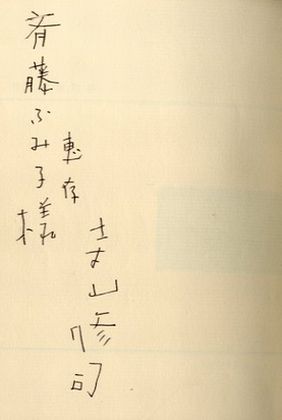 斉藤ふみ子様
恵存
寺山修司